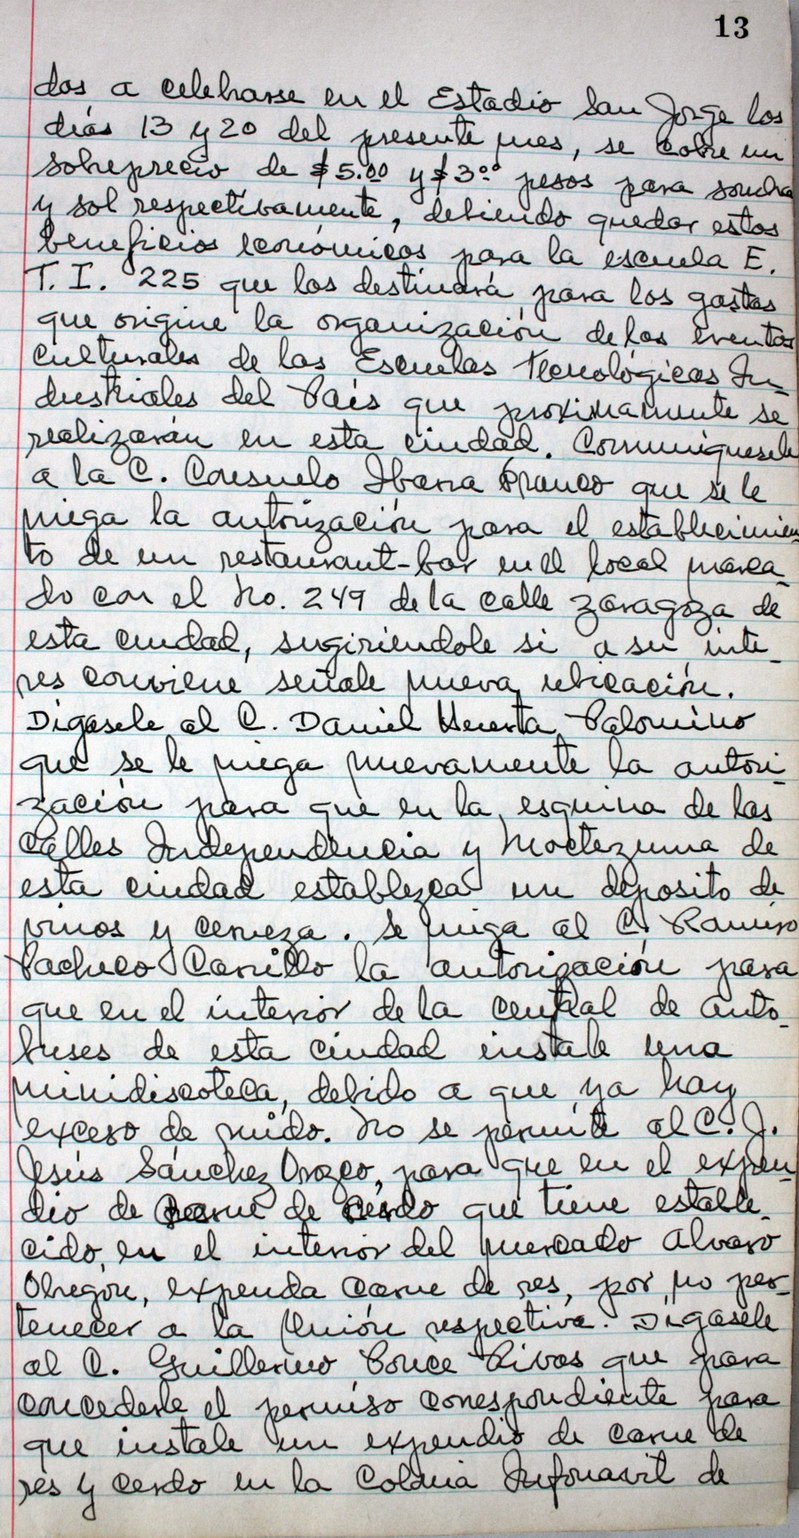 13
dos a celebrarse en el Estadio San Jorge los
días 13 y 20 del presente mes, se cobre un
sobreprecio de $5.00 y $3.00 pesos para sombra
y sol respectivamente, debiendo quedar estos
beneficios económicos para la escuela E.
T. I. 225 que los destinará para los gastos
que origine la organización de los eventos
culturales de las Escuelas Tecnológicas In-
dustriales del País que proximamente se
realizarán en esta ciudad. Comuníquesele
a la C. Consuelo Ibarra Franco que se le
niega la autorización para el establecimien
to de un restaurant-bar en el local marca-
do con el No. 249 de la calle Zaragoza de
esta ciudad, sugiriéndole si a su inte-
res conviene señale nueva ubicación.
Dígasele al C. Daniel Huerta Palomino
que se le niega nuevamente la autori-
zación para que en la esquina de las
calles Independencia y Moctezuma de
esta ciudad establezca un deposito de
vinos y cerveza. Se niega al C. Ramiro
Pacheco Carrillo la autorización para
que en el interior de la central de auto-
buses de esta ciudad instale una
minidiscoteca, debido a que ya hay
exceso de ruido. No se permite al C. J.
Jesús Sánchez Orozco, para que en el expen-
dio de carne de cerdo que tiene estable-
cido en el interior del mercado Alvaro
Obregón, expenda carne de res, por no per-
tenecer a la Unión respectiva. Dígasele
al C. Guillermo Ponce Rivas que para
concederle el permiso correspondiente para
que instale un expendio de carne de
res y cerdo en la Colonia Infonavit de